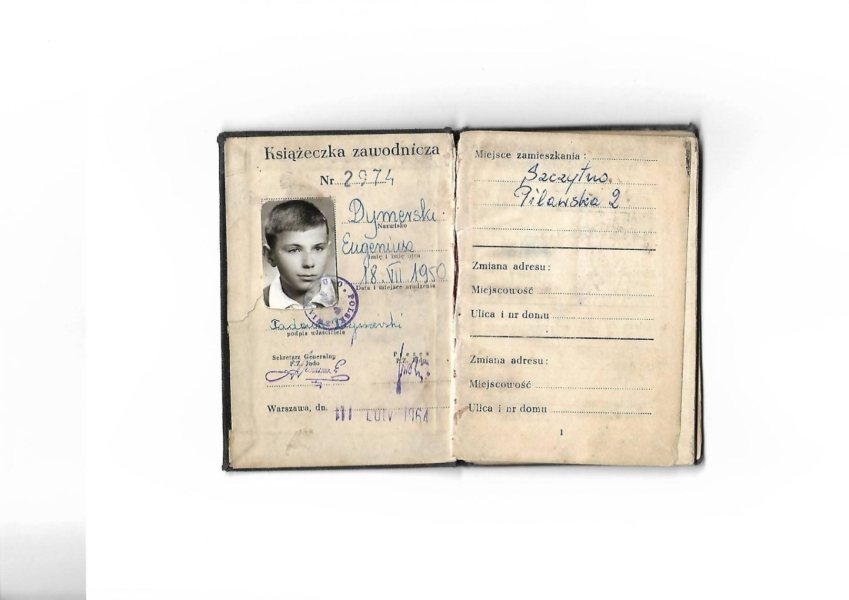 Książeczka zawodnicza
Nr 2974
Dymerski
Nazwisko
Eugeniusz
Imię i imię ojca
18 VII 1950
Data i miejsce urodzenia
Dymerski
podpis właściciela
Sekretarz Generalny
P.Z. Judo
Prezes
P.Z. Judo
Warszawa, dn. LUTY 1964
Miejsce zamieszkania:
Szczytno
Piławska 2
Zmiana adresu:
Miejscowość
Ulica i nr domu
Zmiana adresu:
Miejscowość
Ulica i nr domu
1